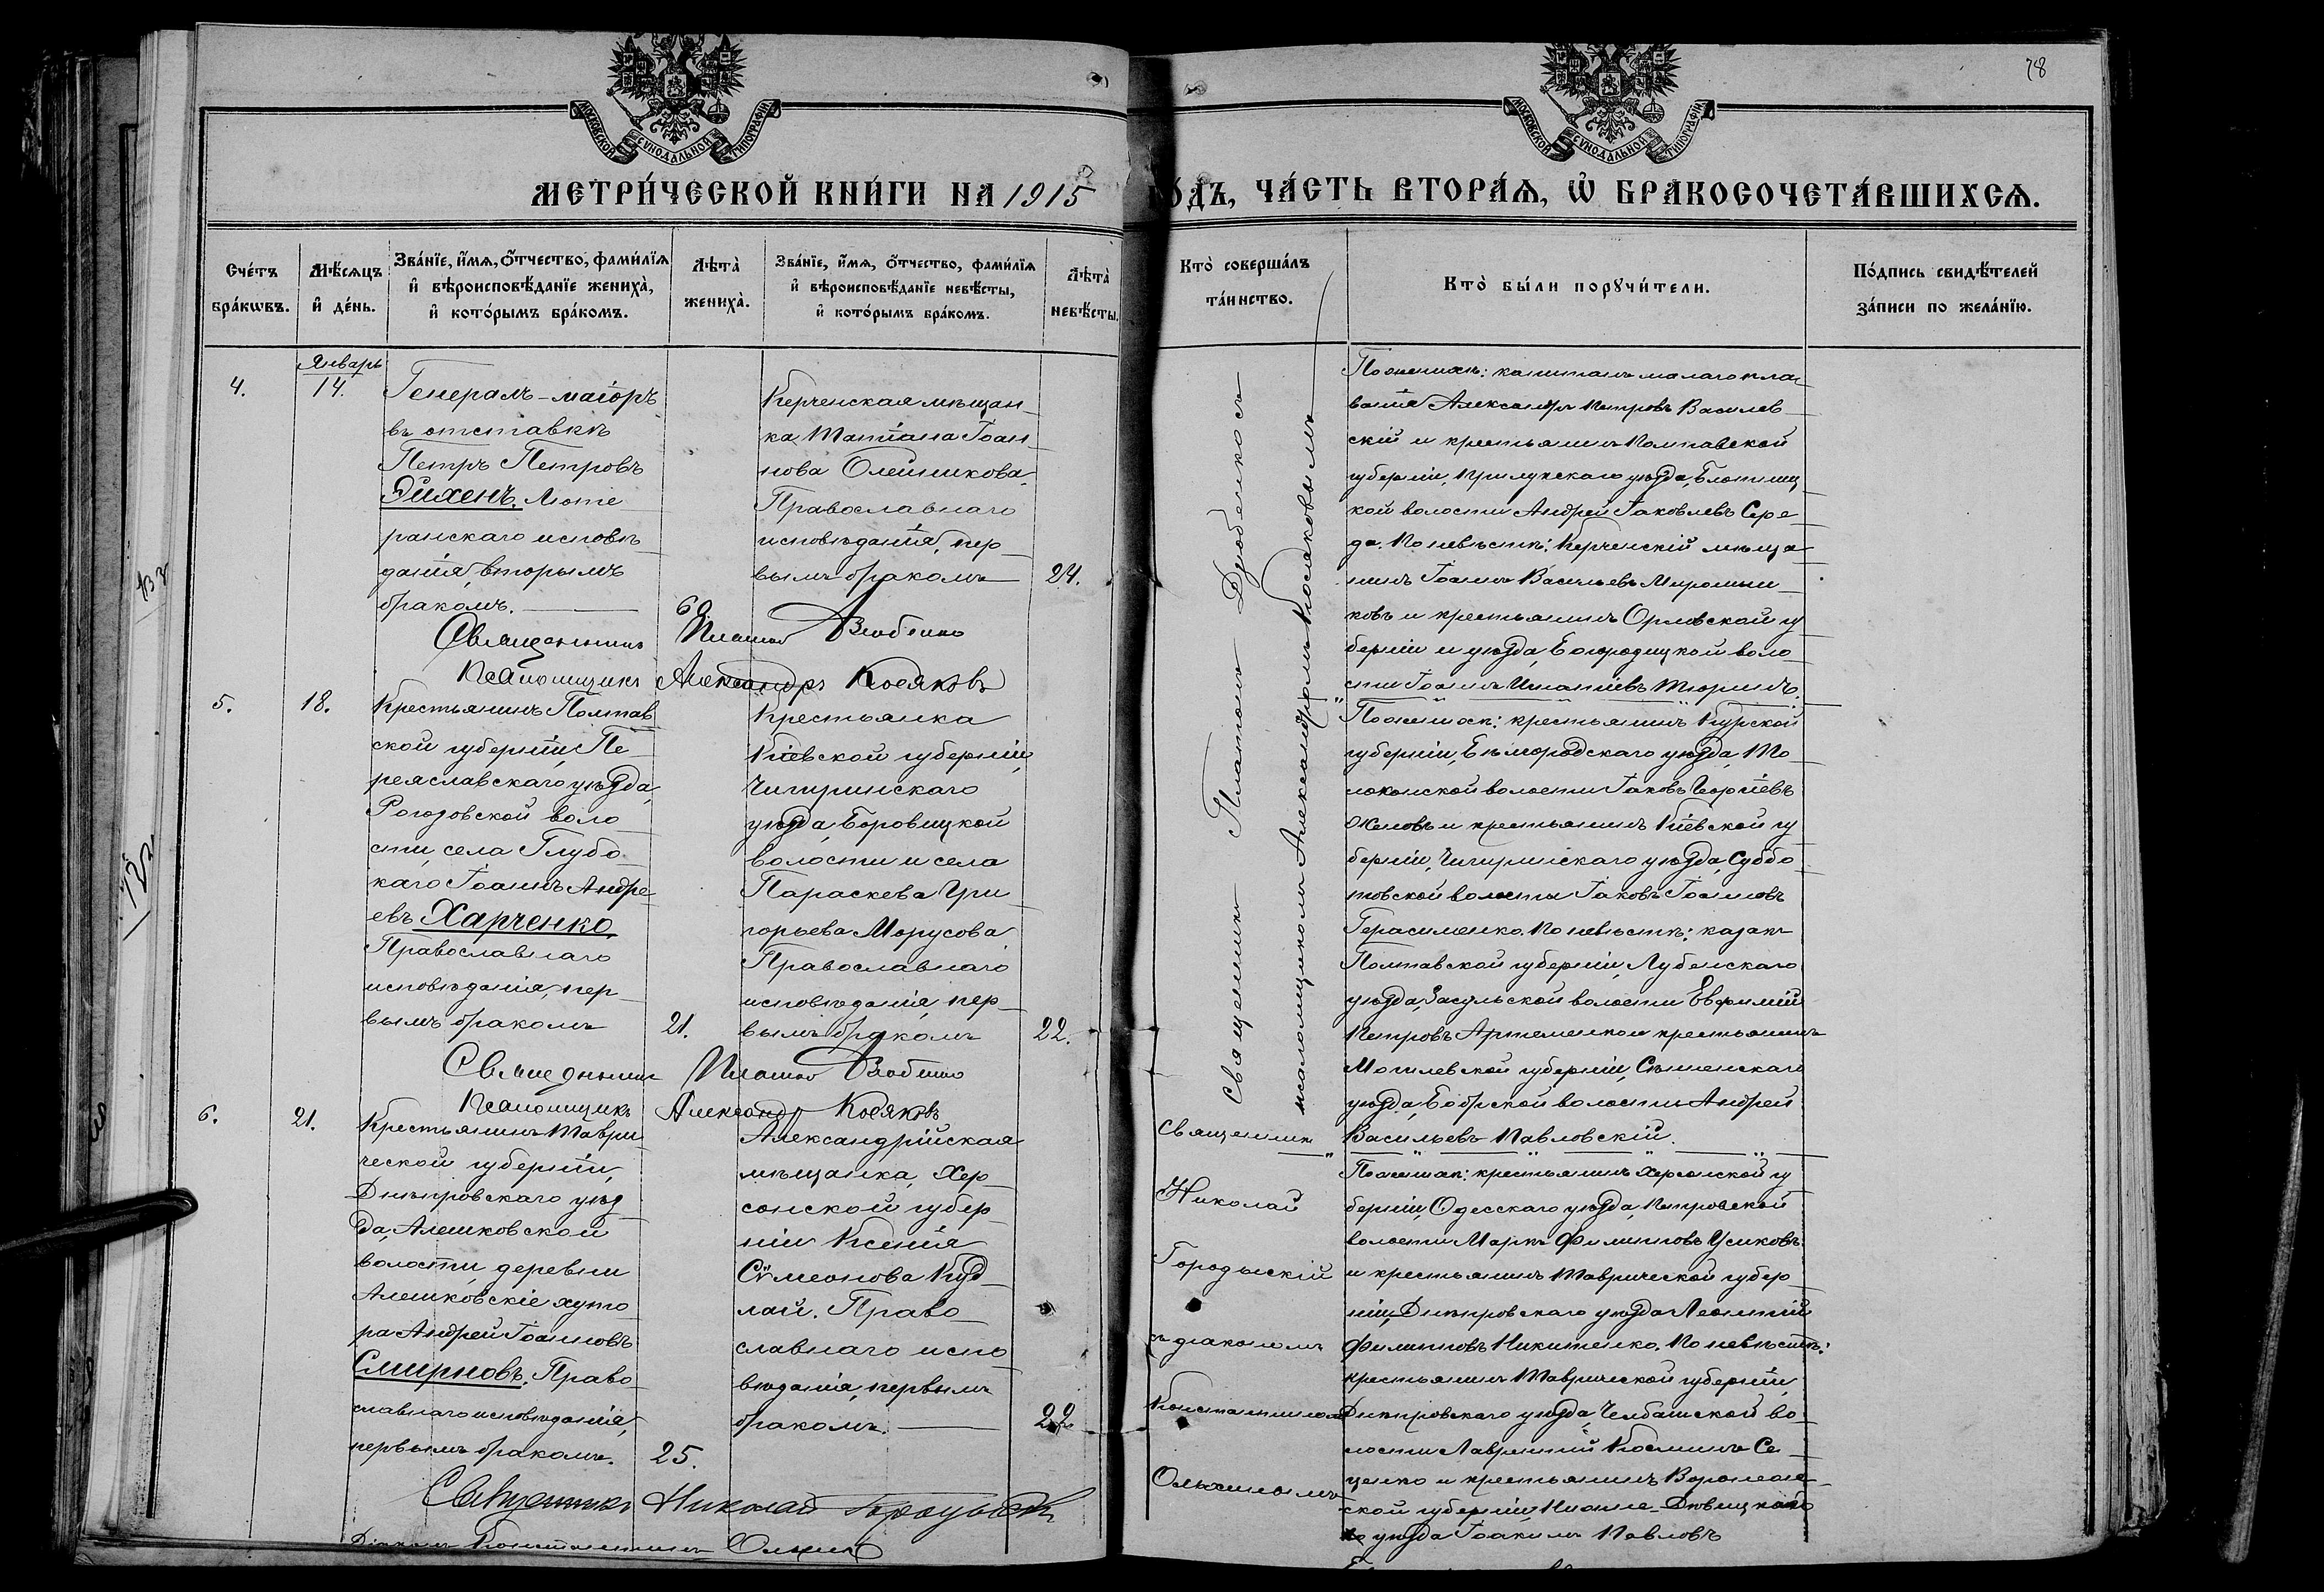 78
МОСКОВСКОЙ СУНОДАЛЬНОЙ ТИПОГРАФІИ
МОСКОВСКОЙ СУНОДАЛЬНОЙ ТИПОГРАФІИ
МЕТРИ́ЧЕСКОЙ КНИ́ГИ НА 1915
ГО́ДЪ, ЧА́СТЬ ВТОРА́Ѧ, Ѡ҆ БРАКОСОЧЕТА́ВШИХСѦ.
Сче́тъ бра́кѡвъ.
Мѣ́сѧцъ и҆ де́нь.
Зва́нїе, и҆́мѧ, ѻ҆́тчество, фами́лїѧ
и҆ вѣроисповѣ́данїе жениха̀,
и҆ кото́рымъ бра́комъ.
Лѣта̀ жениха̀.
Зва́нїе, и҆́мѧ, ѻ҆́тчество, фами́лїѧ
и҆ вѣроисповѣ́данїе невѣ́сты,
и҆ кото́рымъ бра́комъ.
Лѣта̀ невѣ́сты.
Кто̀ соверша́лъ
та́инство.
Кто̀ бы́ли порꙋчи́тели.
По́дпись свидѣ́телей
за́писи по жела́нїю.
4.
Январь
14.
Генералъ-маіоръ
въ отставкѣ
Петръ Петровъ
Эйхенъ. Люте
ранскаго исповѣ
данія, вторымъ
бракомъ.
60.
Керченская мѣщан
ка Татіана Іоан
нова Олейникова,
Православнаго
исповѣданія, пер
вымъ бракомъ
24.
Священникъ Платонъ Дзюбенко
Псаломщикъ Александръ Косяковъ
Священникъ Платонъ Дзюбенко съ
псаломщикомъ Александромъ Косяковымъ
По женихѣ: капитанъ малаго пла
ванія Александръ Петровъ Василев
скій и крестьянинъ Полтавской
губерніи, Прилукскаго уѣзда,
кой волости Андрей Іаковлевъ Сере
да. По невѣстѣ: Керченскій мѣща
нинъ Іоаннъ Васильевъ Миромни
ковъ и крестьянинъ Орловской гу
берніи и уѣзда, Богородицкой воло
сти Іоаннъ Игнатіевъ Тюринъ.
5.
18.
Крестьянинъ Полтав
ской губерніи, Пе
реяславскаго уѣзда,
Рогозовской воло
сти, села Глубо
каго Іоаннъ Андре
евъ Харченко
Православнаго
исповѣданія, пер
вымъ бракомъ
21.
Крестьянка
Кіевской губерніи,
Чигиринскаго
уѣзда, Боровицкой
волости и села
Параскева Гри
горьева Морусова
Православнаго
исповѣданія, пер
вымъ бракомъ
22.
Священникъ Платонъ Дзюбенко
Псаломщикъ Александръ Косяковъ
По женихѣ: крестьянинъ Курской
губерніи, Бѣлгородскаго уѣзда, То
локонской волости Іаковъ Георгіевъ
и крестьянинъ Кіевской гу
берніи, Чигиринскаго уѣзда, Суббо
товской волости Іаковъ Іоанновъ
Герасименко. По невѣстѣ: казакъ
Полтавской губерніи, Лубенскаго
уѣзда, Засульской волости Евфимій
Петровъ Артеменко и крестьянинъ
Могилевской губерніи, Сѣнненскаго
уѣзда, Бобрской волости Андрей
Васильевъ Павловскій.
6.
21.
Крестьянинъ Таври
ческой губерніи,
Днѣпровскаго уѣз
да, Алешковской
волости, деревни
Алешковскіе хуто
ра Андрей Іоанновъ
Смирновъ. Право
славнаго исповѣданія,
первымъ бракомъ.
25.
Александрійская
мѣщанка, Хер
сонской губер
ніи Ксенія
Сѵмеонова Куд
лай. Право
славнаго испо
вѣданія, первымъ
бракомъ.
22
Священникъ Николай Городыскій
Діаконъ Константинъ
Священникъ
Николай
Городыскій
съ діакономъ
Константиномъ
По женихѣ: крестьянинъ Херсонской гу
берніи, Одесскаго уѣзда, Петровской
волости Маркъ Филипповъ Усиковъ
и крестьянинъ Таврической губер
ніи, Днѣпровскаго уѣзда Леонтій
Филипповъ Никитенко. По невѣстѣ:
крестьянинъ Таврической губерніи,
Днѣпровскаго уѣзда, Челбасской во
лости Лаврентій Косминъ Се
ценко и крестьянинъ Воронеж
ской губерніи, Нижне-Дѣвицкаго
уѣзда Іоакимъ Павловъ